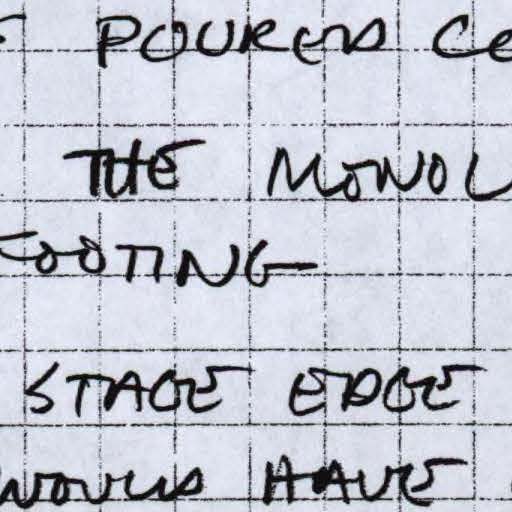 POURED
THE MONOL
FOOTING
STAGE EDGE
WOULD HAVE